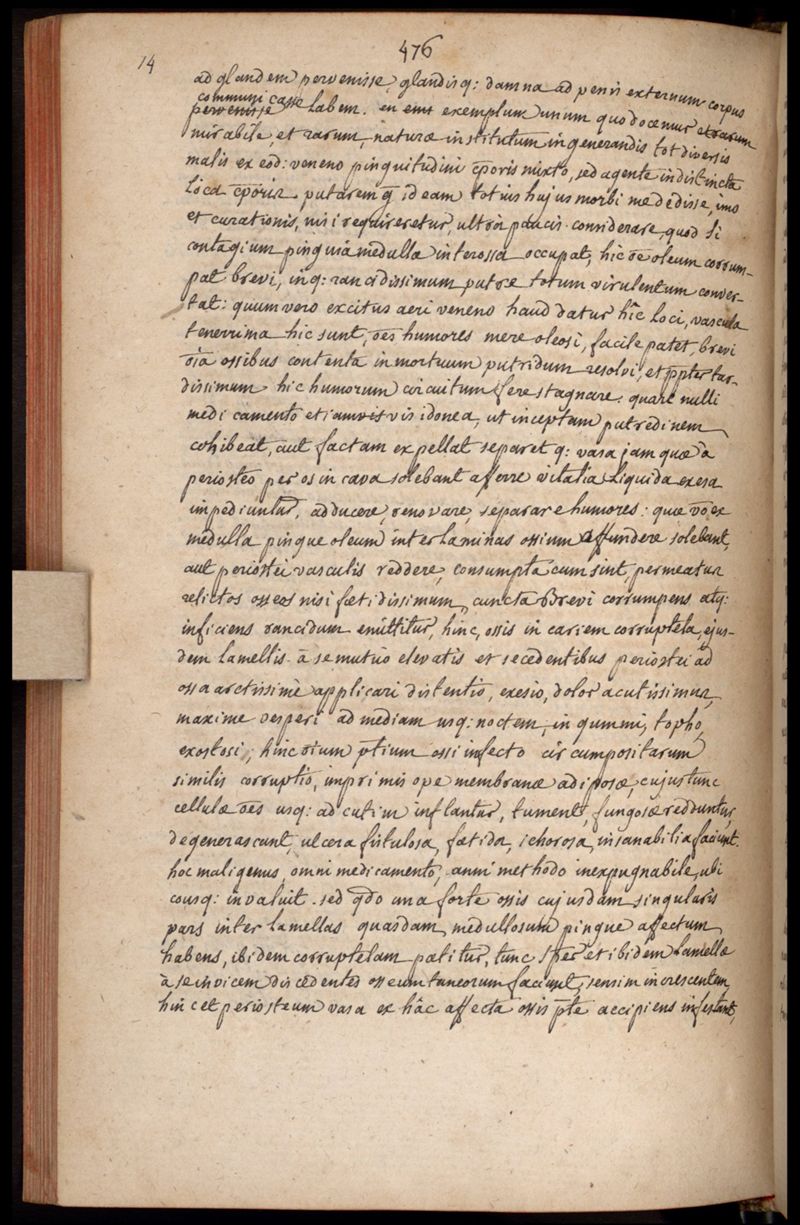 14
476
ad glandem pervenisse, glandisq: damna ad penis externum corpus
communicasse labem. en exemplum unum quo docemur et rarum
mirabile, et rarum, naturæ institutum in generandis tot diversis
malis ex eod: veneno pinguitudini c̄poris mixto, sed agente in distincta
loca c̄poris. putarem q̄ ideam totius hujus morbi me dedisse, imo
et curationis, nisi requireretur ultra paucis considerare, quod si
contagium pinguia medullæ interossa occupat, hic oē oleum corrum-
pat brevi, inq: rancidissimum putre totum virulentum conver-
tat: quum vero excitus aeri veneno haud datur hîc loci, vascula
tenerrima hic sunt, oēs humores mere oleosi, facile patet, brevi
oīa ossibus contenta in mortuum putridum resolvi, et ppter tar-
dissimum hic humorum circuitum fere stagnare. quare nulli
medicamento etiam vis idonea, ut inceptam putredinem
cohibeat, aut factam expellat separetq: vasa jam quæ a
periosteo per os in cava solebant afferre vitalia liquida exesa
impediuntur, adducere, renovare, separare humores: quæ vō ex
medulla pingue oleum inter laminas ossium affundere solebant,
aut periostei vasculis reddere, consumpta cum sint, permeatus
relictos osseos nisi fœtidissimum, cuncta brevi corrumpens atq:
inficiens rancidum emittitur, hinc, ossis in cariem corruptela, ejus-
dem lamellis a se mutuo elevatis et secedentibus periostei ad
ossa arctissime applicari distentio, exesio, dolor acutissimus,
maxime vesperi ad mediam usq: noctem, in gummi, topho,
exostosi; hinc oīum p̄tium ossi infecto circumpositarum
similis corruptio, imprimis ope membranæ adiposæ, cujus tunc
cellulæ oēs usq: ad cutim inflantur, tument, fungosæ redduntur,
degenerascunt, ulcera fistulosa, fœtida, ichorosa, insanabilia faciunt.
hoc mali genus, omni medicamento, omni methodo inexpugnabile, ubi
eousq: invaluit. sed qdo una forte ossis cujusdam singularis
pars inter lamellas quasdam, medullosum pingue affectum
habens, ibidem corruptelam patitur, tunc sæpe et ibidem lamellæ
à se invicem discedentes osseum tumorem faciunt, sensim increscentem,
hinc et periosteum vasa ex hâc affecta ossis p̄te accipiens infestant,